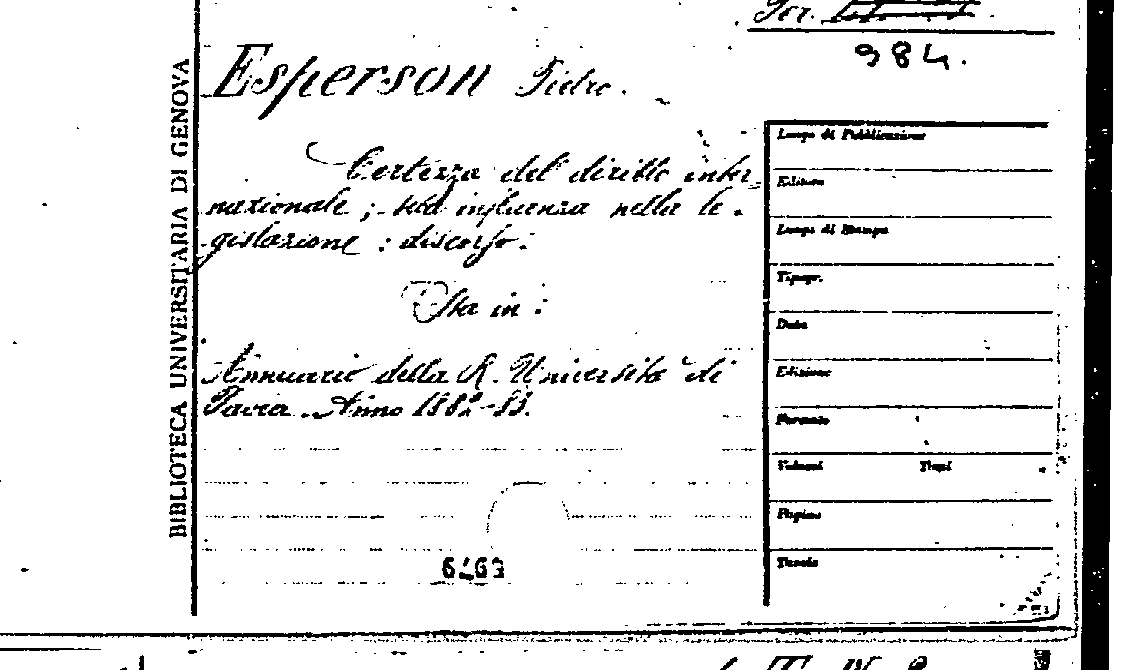 Scr.
984.
BIBLIOTECA UNIVERSITARIA DI GENOVA
Esperson Pietro.
Certezza del diritto inter_
nazionale ; sua influenza nella le_
gislazione : discorso :
Sta in :
Annuario della R. Università di
Pavia. Anno 1882-83.
Luogo di Pubblicazione
Editore
Luogo di Stampa
Tipogr.
Data
Edizione
Formato
Volumi Tomi
Pagine
Tavole